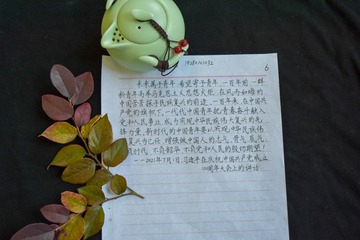 6
未来属于青年,希望寄予青年。一百年前,一群
新青年高举马克思主义思想火炬,在风雨如晦的
中国苦苦探寻民族复兴的前途。一百年来,在中国共
产党的旗帜下,一代代中国青年把青春奋斗融入
党和人民事业,成为实现中华民族伟大复兴的先
锋力量。新时代的中国青年要以实现中华民族伟
大复兴为己任,增强做中国人的志气、骨气、底气,
不负时代,不负韶华,不负党和人民的殷切期望!
——2021年7月1日,习近平在庆祝中国共产党成立
100周年大会上的讲话